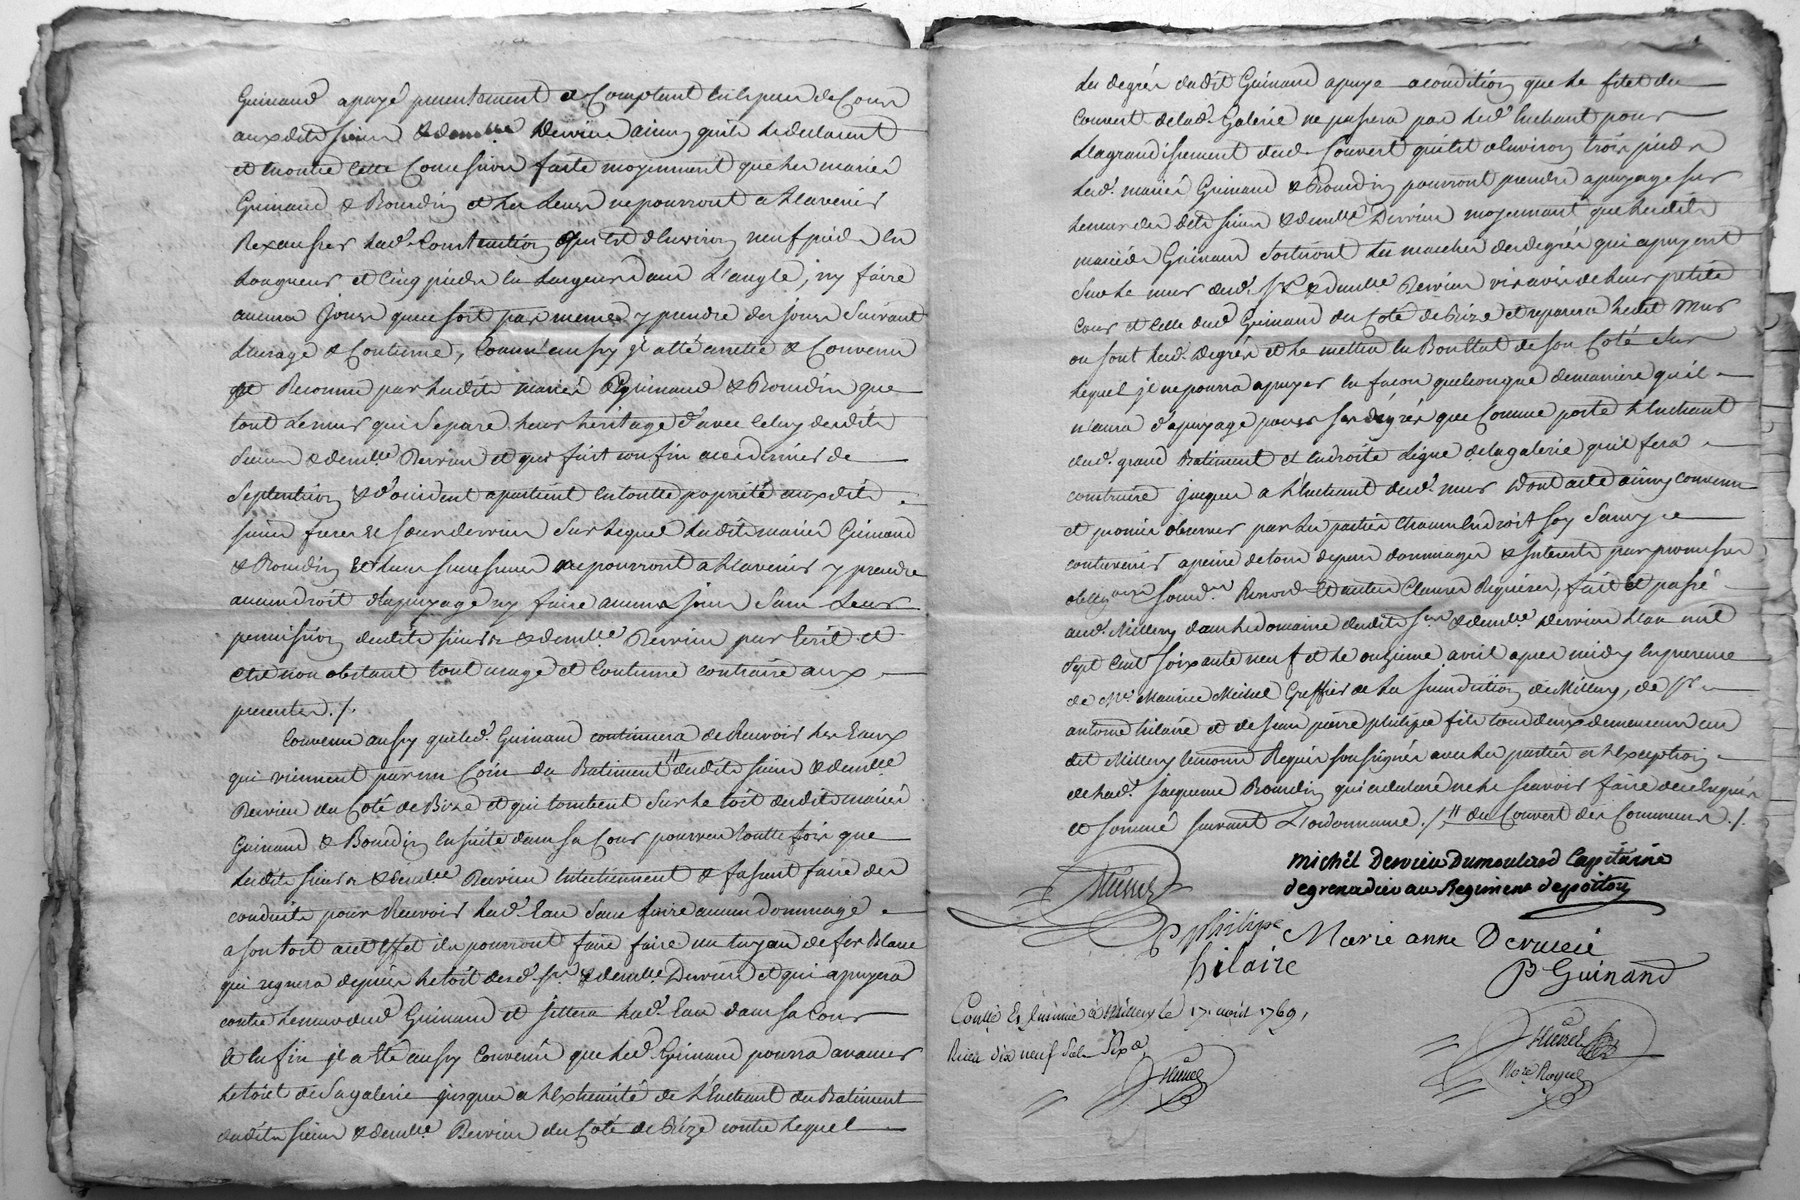 Guinand a payé presentement et Comptant en espece de Cours
auxdits sieur & demlle Dervieu ainsy qu'ils le declarent
et moutre cette Concession faite moyennant que les mariés
Guinand & Bourdin et les leurs ne pourront a l'avenir
Rexausser lad. Construction qui est d'environ neuf pieds en
Longueur et cinq pieds en Largeur dans l'angle, ny faire
aucuns Jours que ce soit pas meme y prendre des jours Suivant
L'usage & Coutume, Comm'aussy jl a été arretté & Convenu
et Reconnu par lesdits mariés Guinand & Bourdin que
tout le mur qui Separe leurs héritage d'avec celuy desdits
Sieur & demlle Dervieu et qui fait confin aux derniers de
Septentrion & d'occident apartient en toutte propriété auxdits
sieur frere & soeur Dervieu Sur lequel lesdits mariés Guinand
& Bourdin Et leurs successeurs ne pourront a l'avenir y prendre
aucun droit d'apuyage ny faire aucuns jours Sans Leur
permission desdits sieur & demlle Dervieu par Ecrit et
ce non obstant tout usage et Coutume contraire aux
presentes ./.
Convenu aussy que led. Guinand continuera de Recevoir les Eaux
qui viennent par un Coin du Batiment // desdits sieur & demlle
Dervieu du Coté de Bize et qui tombent Sur le toit desdits mariés
Guinand & Bourdin ensuite dans sa Cour pourveu toutte fois que
lesdits sieur & demlle Dervieu Entretiennent & fassent faire des
conduits pour Recevoir lad. Eau Sans faire aucun dommage
a son toit a cet effet ils pourront faire faire un tuyau de fer Blanc
qui regnera depuis le toit desd. sr. & demlle Dervieu et qui apuyera
contre le mur dud. Guinand et jettera lad. Eau dans sa Cour
Et enfin jl a été aussy Convenu que led. Guinand pourra avancer
le toit de Sa galerie jusques a l'Extremité de l'Enchant du Batiment
desdits sieur & demlle Dervieu du Coté de Bize contre lequel
les degrés dudit Guinand apuye a condition que le filet du
Couvert de lad. Galerie ne passera pas led. Enchant pour
L'agrandissement dud. Couvert qui est d'environ trois pieds
lesd. mariés Guinand & Bourdin pourront prendre apuyage sur
le mur des dits sieur & demlle Dervieu moyennant que lesdits
mariés Guinand Sortiront les marches des degrés qui apuyent
Sur le mur desd. sr. & demlle Dervieu vis avis de leur petite
Cour et celle dud. Guinand du Coté de Bize et reparera ledit Mur
ou sont lesd. degrés et le mettra en Bon Etat de son Coté Sur
lequel jl ne pourra apuyer en façon quelconque de maniere qu'il
n'aura d'apuyage pour ses degrés que Comme porte l'Enchant
dud. grand Batiment et en droite Ligne de la galerie qu'il fera
construire jusques a l'Enchant dud. mur Dont acte ainsy convenu
et promis observer par les parties chacun En droit soy Sans y
contrevenir a peine de tous depens dommages & Interets par promesses
obligons Soumons Renons Et autres Clauses Requises, fait et passé
aud. Millery dans le domaine desdits sieur & demlle Dervieu L'an mil
Sept Cent Soixante neuf et le onzieme avril apres midy En presence
de Me Maurice Michel Greffier de la jurisdiction de Millery, de Sr
antoine hilaire et de jean pierre philipe fils tous deux demeurans au
dit Millery temoins Requis soussignés avec les parties a l'Exception
de lad. jacqueme Bourdin qui a declaré ne le scavoir faire de ce Enquis
et sommé suivant L'ordonnance ./. // du Couvert des Communs ./.
michel Dervieu Dumoulard Capitaine
de grenadier au Regiment de poitou
P philipe Marie anne Dervieu
hilaire
P Guinand
Collé Et Insinué à Millery le 17. avril 1769,
Recu dix neuf Sols Six d.
Note Royal